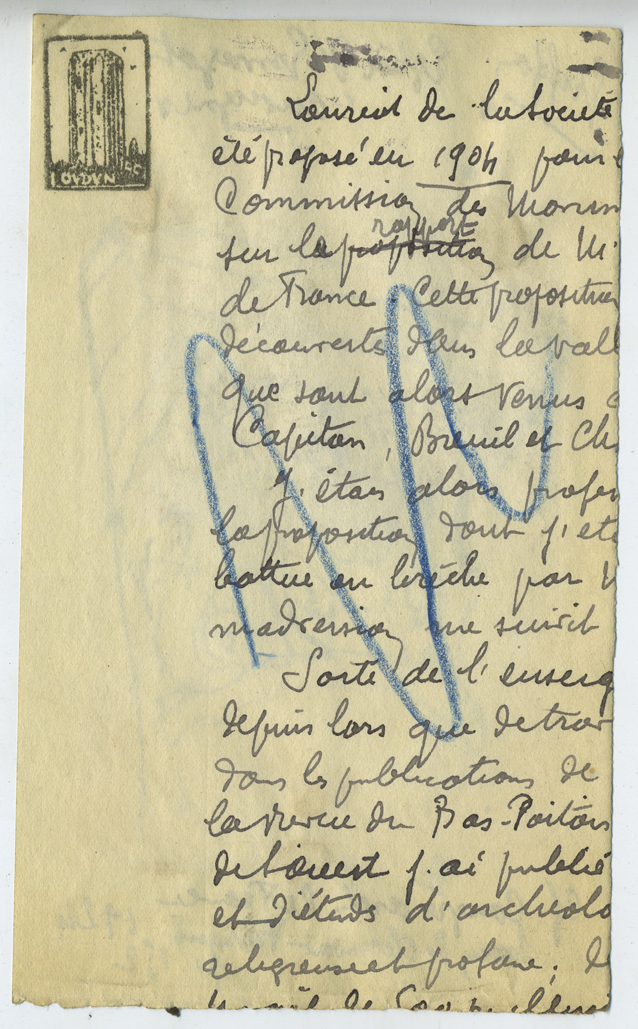 Lauréat de la Societé
été proposé en 1904 pour
Commission des Monum
rapport
sur la proposition de M
de France. Cette proposition
découvertes dans la vall
que sont alors venus
Capitan, Breuil et Ch
J'étais alors profes
la proposition dont j'ét
battue en brèche par
me suivit
Sorti de l'enseig
depuis lors que de trav
dans les publications de
la revue du Bas-Poitou
de l'ouest j'ai publié
et d'études d'archéolo
religieuse et profane; de